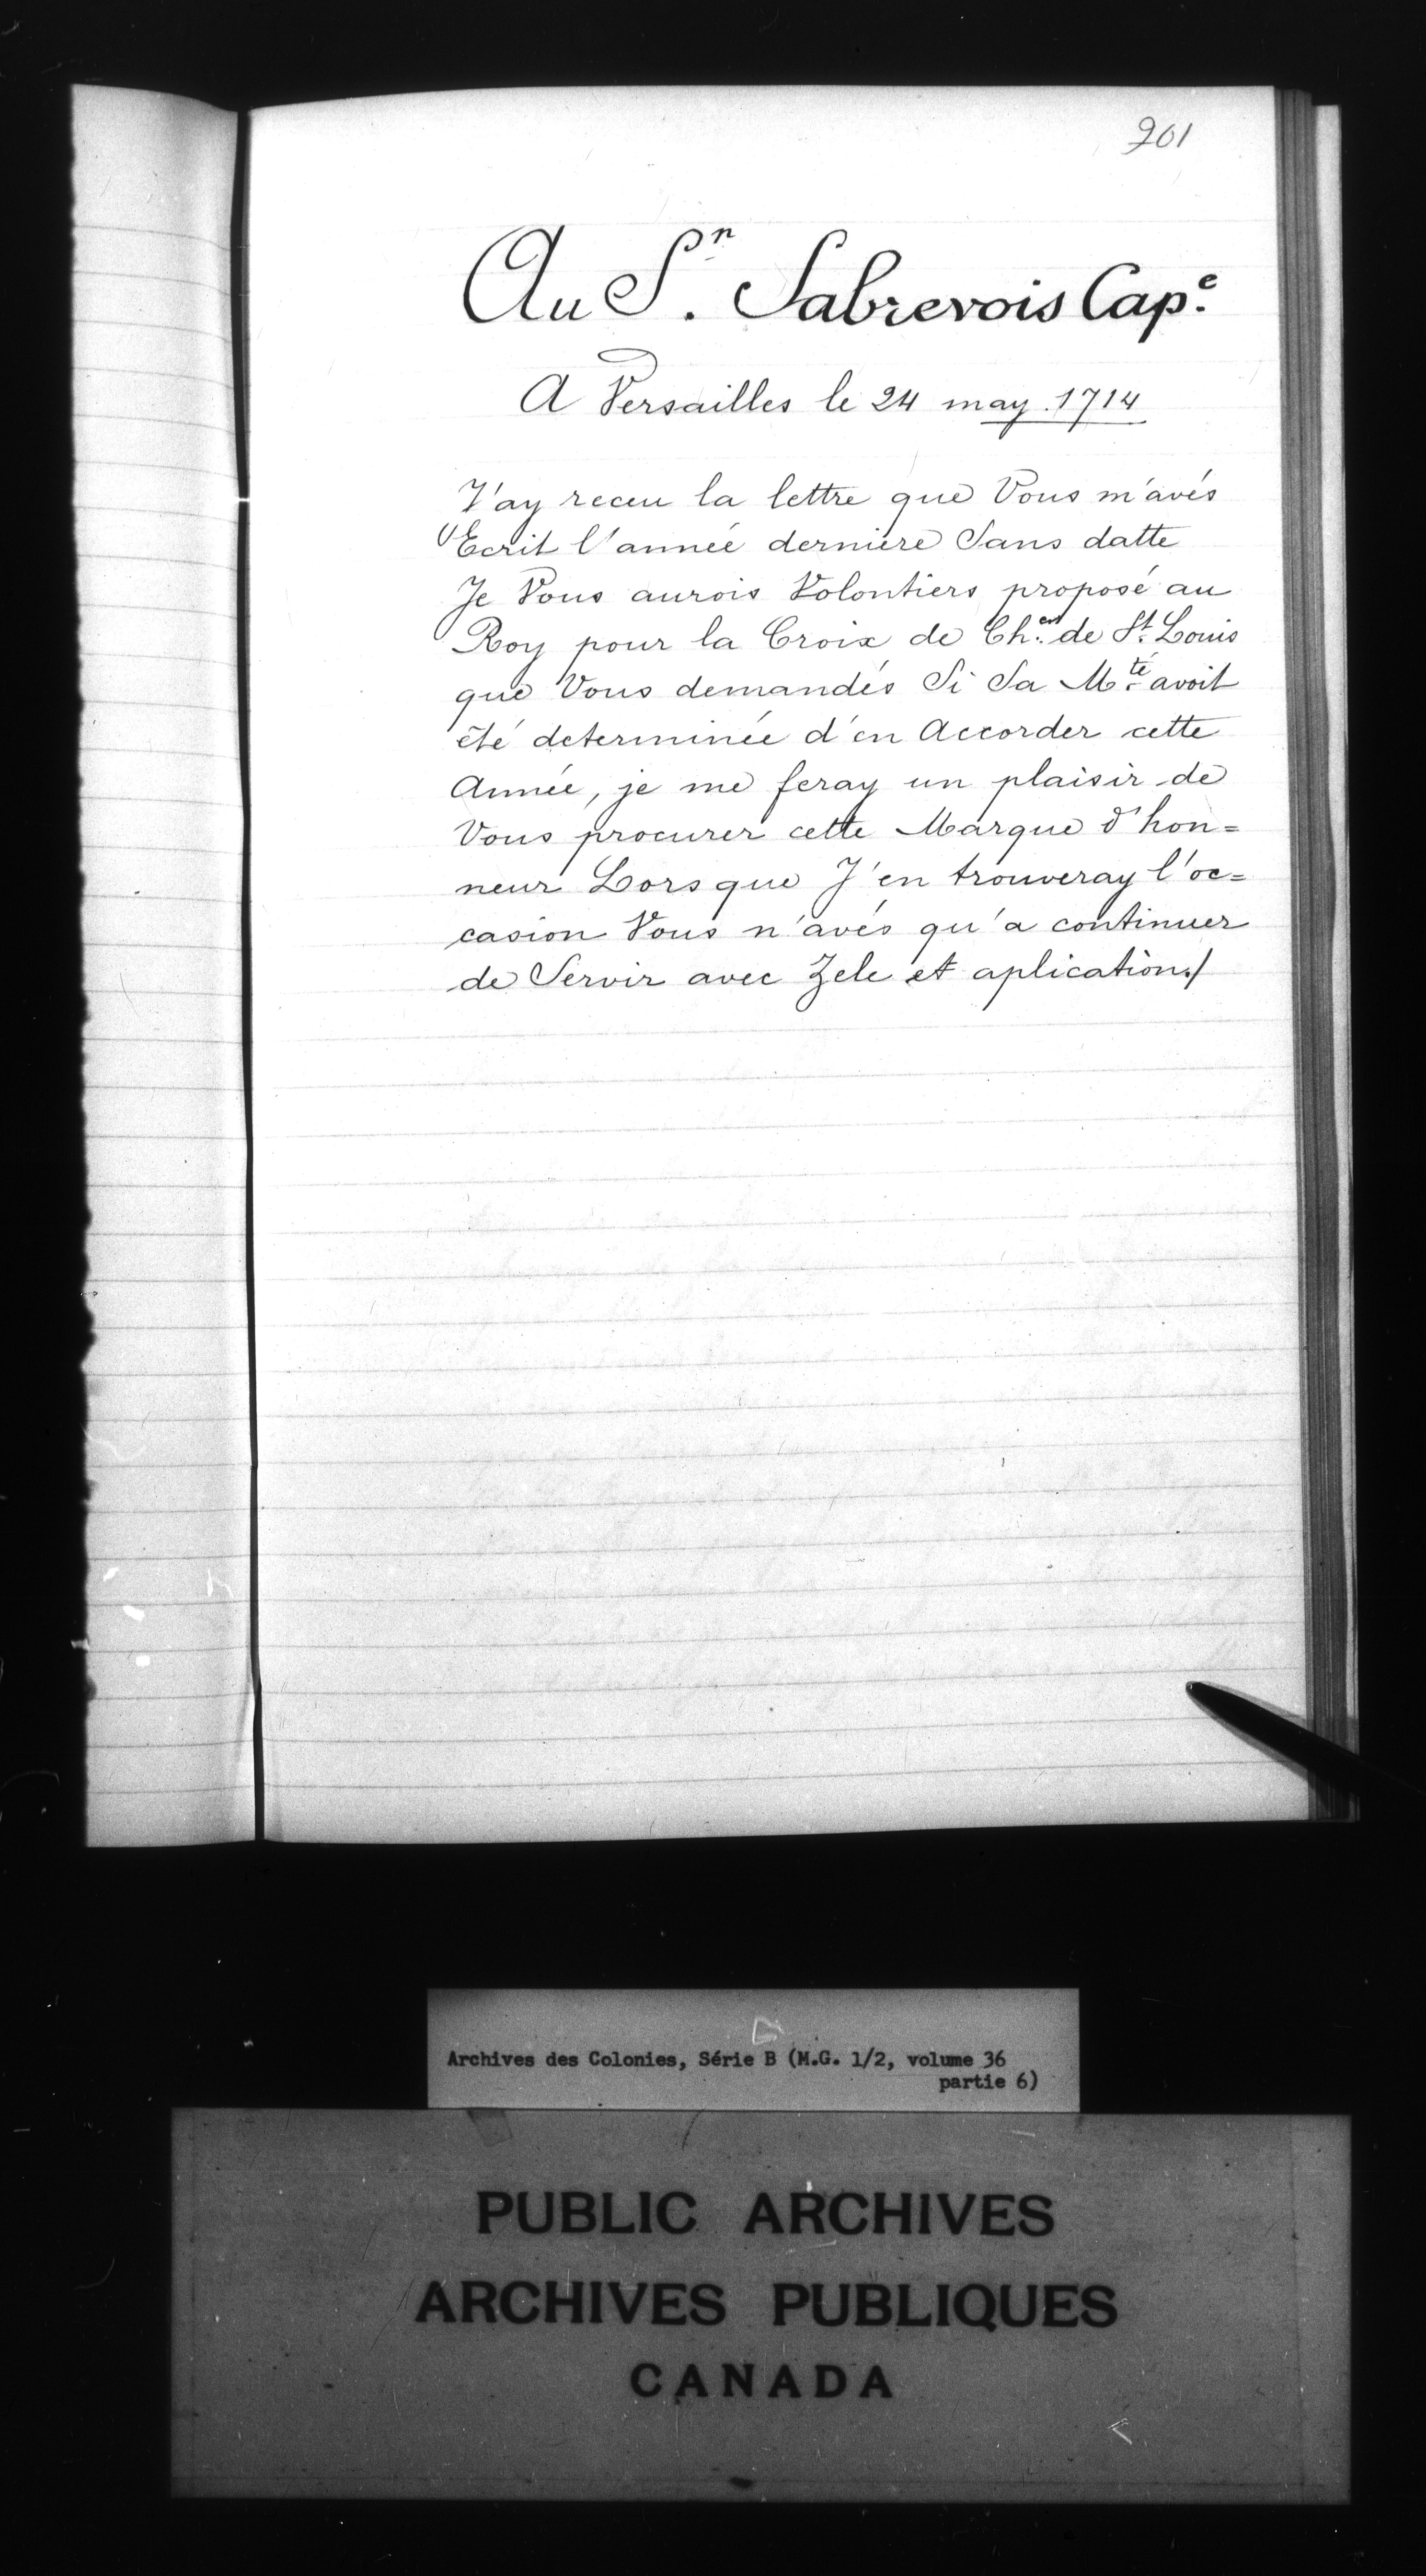 201
Au S.ⁿ Sabrevois Cap.ᵉ
A Versailles le 24 may 1714
J'ay receu la lettre que Vous m'avés
Ecrit l'année derniere Sans datte
Je Vous aurois Volontiers proposé au
Roy pour la Croix de Ch.ᵉʳ de S.ᵗ Louis
que Vous demandés Si Sa M.ᵗᵉ avoit
été determinée d'en Accorder cette
Année, je me feray un plaisir de
Vous procurer cette Marque d'hon=
neur Lorsque J'en trouveray l'oc=
casion Vous n'avés qu'a continuer
de Servir avec Zele et aplication./
Archives des Colonies, Série B (M.G. 1/2, volume 36
partie 6)
PUBLIC ARCHIVES
ARCHIVES PUBLIQUES
CANADA